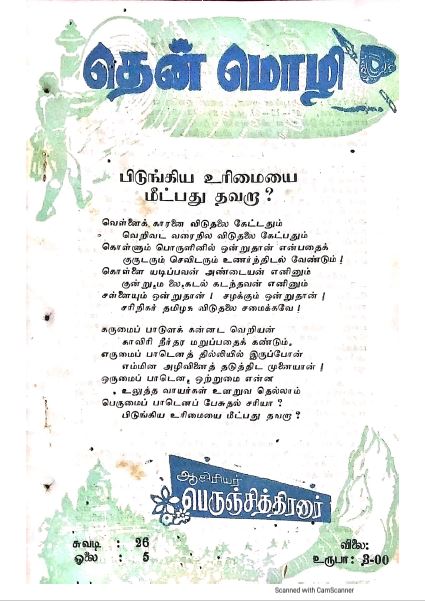 தென் மொழி
பிடுங்கிய உரிமையை
மீட்பது தவறா ?
வெள்ளைக் காரனை விடுதலை கேட்டதும்
வெறிவட வரைதில விடுதலை கேட்பதும்
கொள்ளும் பொருளினில் ஒன்றுதான் என்பதைக்
குருடரும் செவிடரும் உணர்ந்திடல் வேண்டும் !
கொள்ளை யடிப்பவன் அண்டையன் எனினும்
குன்றும லை,கடல் கடந்தவன் எனினும்
சள்ளையும் ஒன்றுதான் ! சழக்கும் ஒன்றுதான் !
சரிநிகர் தமிழக விடுதலை சமைக்கவே !
கருமைப் பாடுளக் கன்னட வெறியன்
காவிரி நீர்தர மறுப்பதைக் கண்டும்,
எருமைப் பாடெனத் தில்லியில் இருப்போன்
எம்மின அழிவினைத் தடுத்திட முனையான் !
ஒருமைப் பாடென, ஒற்றுமை என்ன
உலுத்த வாயர்கள் உளறுவ தெல்லாம்
பெருமைப் பாடெனப் பேசுதல் சரியா ?
பிடுங்கிய உரிமையை மீட்பது தவறா ?
ஆசிரியர்
பெருஞ்சித்திரனார்
சுவடி : 26
ஓலை : 5
விலை:
உருபா : 3-00
Scanned with CamScanner